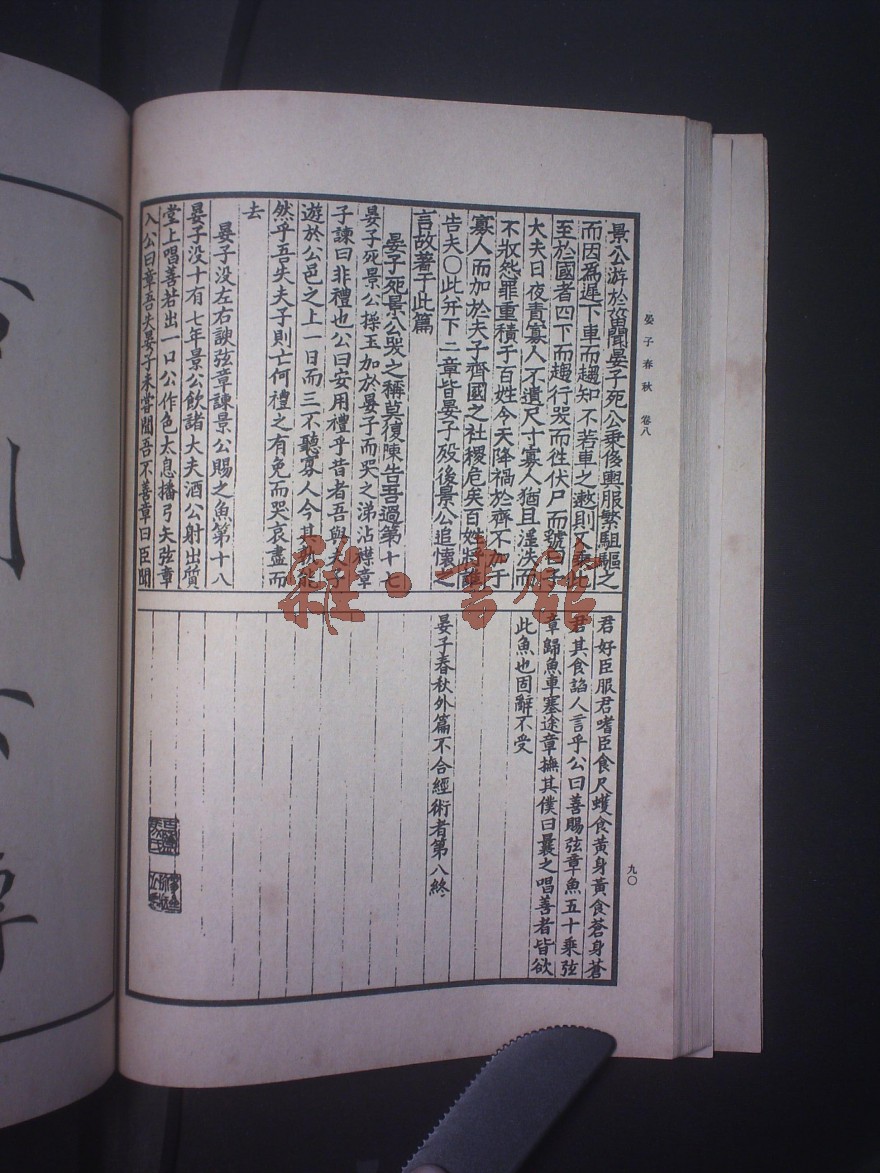 晏子春秋 卷八
九〇
景公游於菑聞晏子死公乗侈輿服繁駔驅之
而因爲遲下車而趨知不若車之遫則又乗比
至於國者四下而趨行哭而徃伏尸而號曰子
大夫日夜責寡人不遺尺寸寡人猶且淫泆而
不收怨罪重積于百姓今天降禍於齊不加于
寡人而加於夫子齊國之社稷危矣百姓將誰
告夫〇此并下二章皆晏子歿後景公追懷之
言故著于此篇
晏子死景公哭之稱莫復陳告吾過第十七
晏子死景公操玉加於晏子而哭之涕沾襟章
子諫曰非禮也公曰安用禮乎昔者吾與夫子
遊於公邑之上一日而三不聽寡人今其孰能
然乎吾失夫子則亡何禮之有免而哭哀盡而
去
晏子没左右諛弦章諫景公賜之魚第十八
晏子没十有七年景公飲諸大夫酒公射出質
堂上唱善若出一口公作色太息播弓矢弦章
入公曰章吾失晏子未嘗聞吾不善章曰臣聞
君好臣服君嗜臣食尺蠖食黃身黃食蒼身蒼
君其食諂人言乎公曰善賜弦章魚五十乗弦
章歸魚車塞途章撫其僕曰曩之唱善者皆欲
此魚也固辭不受
晏子春秋外篇不合經術者第八終
雜·書館